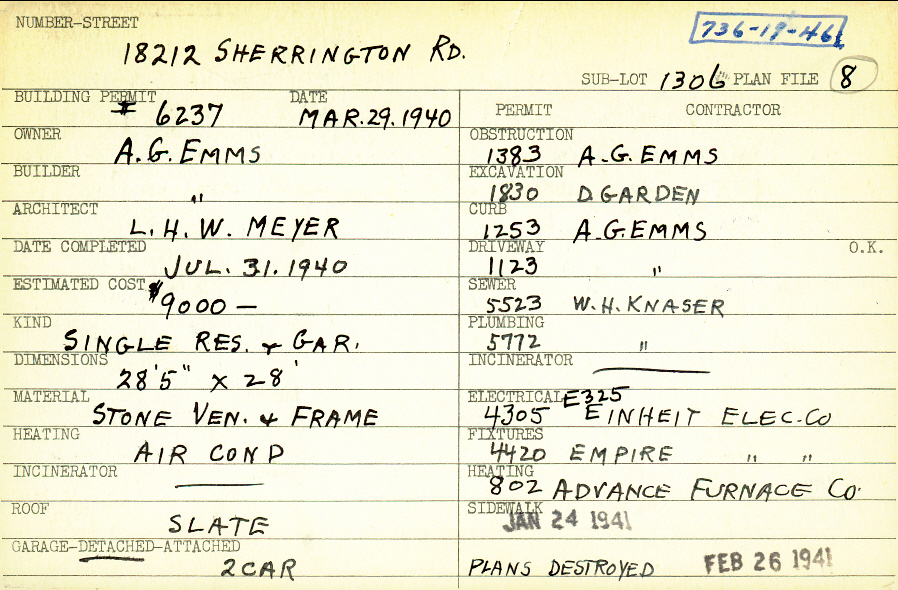 NUMBER-STREET
736-19-46
18212 SHERRINGTON RD.
SUB-LOT 1306 PLAN FILE 8
BUILDING PERMIT DATE
# 6237 MAR.29.1940
PERMIT CONTRACTOR
OWNER
A.G. EMMS
OBSTRUCTION
1383 A.G. EMMS
BUILDER
"
EXCAVATION
1830 D. GARDEN
ARCHITECT
L. H. W. MEYER
CURB
1253 A.G. EMMS
DATE COMPLETED
JUL. 31. 1940
DRIVEWAY O.K.
1123 "
ESTIMATED COST
$9000 —
SEWER
5523 W. H. KNASER
KIND
SINGLE RES. & GAR.
PLUMBING
5772 "
DIMENSIONS
28'5" X 28'
INCINERATOR
———
MATERIAL
STONE VEN. & FRAME
ELECTRICAL E325
4305 EINHEIT ELEC. CO
HEATING
AIR COND
FIXTURES
4420 EMPIRE " "
INCINERATOR
———
HEATING
802 ADVANCE FURNACE CO.
ROOF
SLATE
SIDEWALK
JAN 24 1941
GARAGE-DETACHED-ATTACHED
2 CAR
PLANS DESTROYED FEB 26 1941